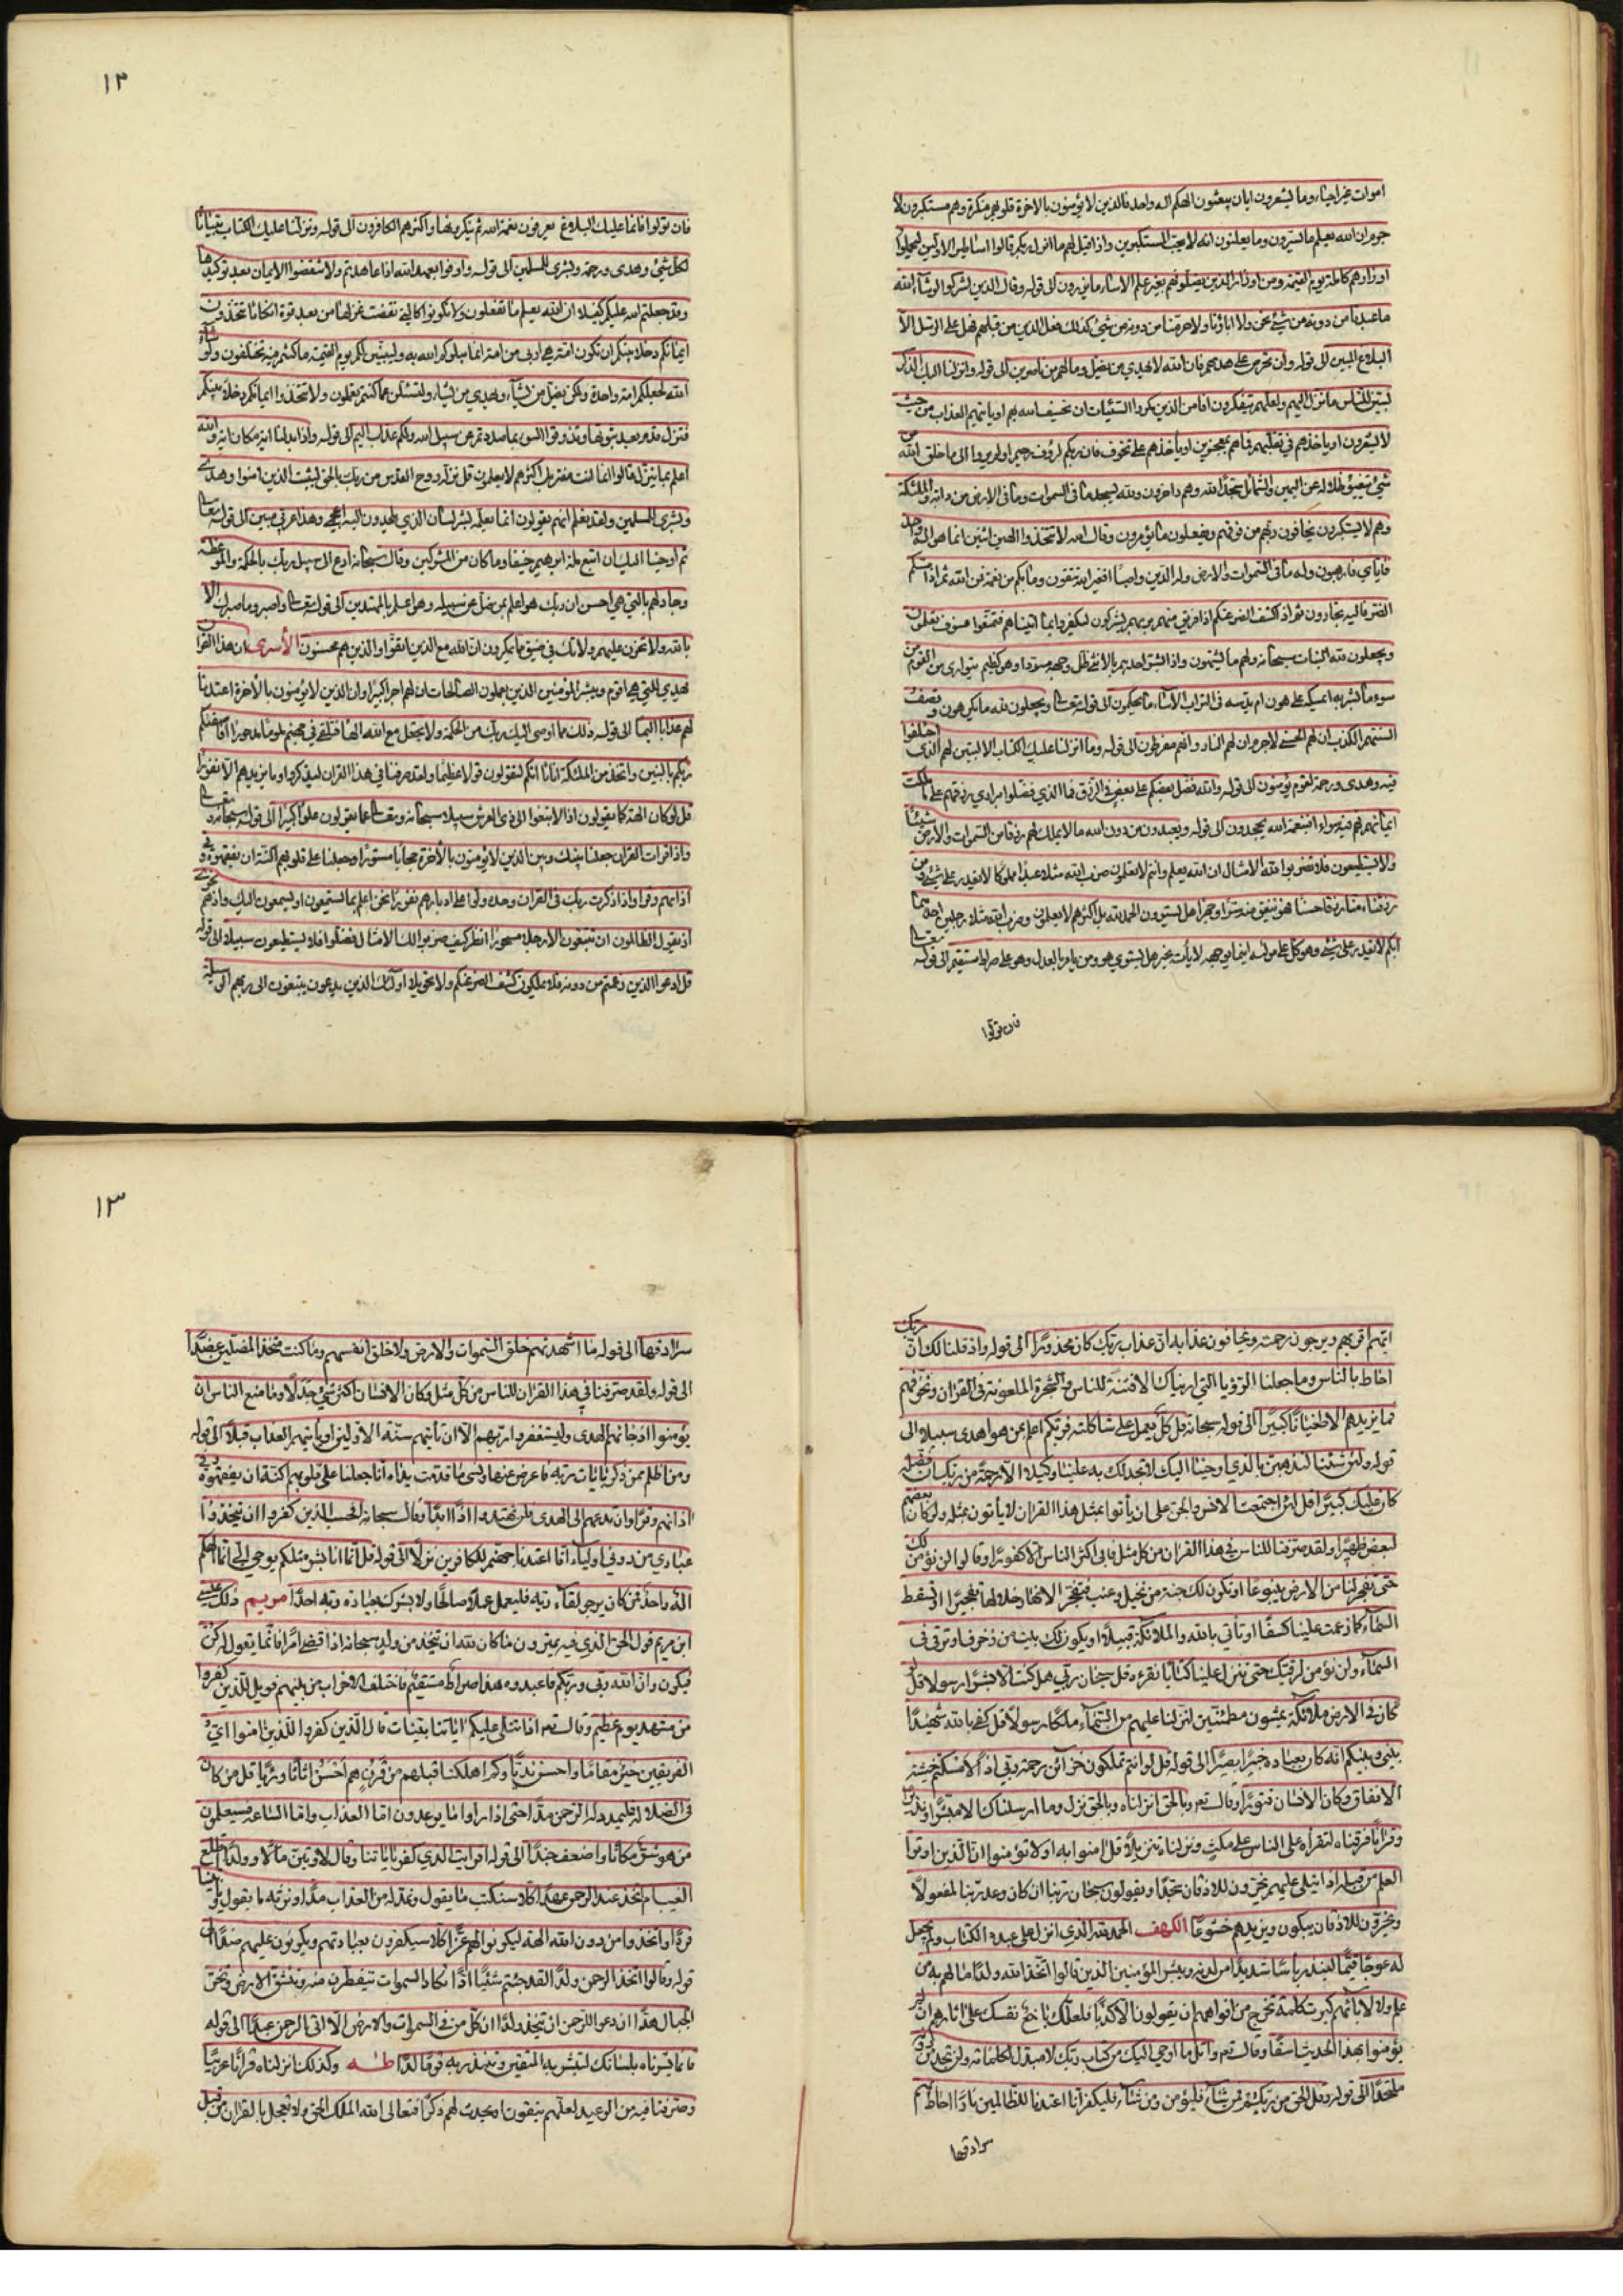 اموات غير احياء وما يشعرون ايان يبعثون الهكم اله واحد فالذين لا يؤمنون بالاخرة قلوبهم منكرة وهم مستكبرون لا
جرم ان الله يعلم ما يسرون وما يعلنون انه لا يحب المستكبرين واذا قيل لهم ما انزل ربكم قالوا اساطير الاولين ليحملوا
اوزارهم كاملة يوم القيمة ومن اوزار الذين يضلونهم بغير علم الا ساء ما يزرون الى قوله وقال الذين اشركوا لو شآء الله
ما عبدنا من دونه من شئ نحن ولا اباؤنا ولا حرمنا من دونه من شئ كذلك فعل الذين من قبلهم فهل على الرسل الا
البلاغ المبين الى قوله وان تحرص على هديهم فان الله لا يهدي من يضل وما لهم من ناصرين الى قوله وانزلنا اليك الذكر
لتبين للناس ما نزل اليهم ولعلهم يتفكرون افامن الذين مكروا السيئات ان يخسف الله بهم او ياتيهم العذاب من حيث
لا يشعرون او ياخذهم في تقلبهم فما هم بمعجزين او ياخذهم على تخوف فان ربكم لرؤف رحيم اولم يروا الى ما خلق الله من
شئ يتفيؤ ظلاله عن اليمين والشمائل سجدا لله وهم داخرون ولله يسجد ما في السموات وما في الارض من دابة والملئكة
وهم لا يستكبرون يخافون ربهم من فوقهم ويفعلون ما يؤمرون وقال الله لا تتخذوا الهين اثنين انما هو اله واحد
فاياي فارهبون وله ما في السموات والارض وله الدين واصبا افغير الله تتقون وما بكم من نعمة فمن الله ثم اذا مسكم
الضر فاليه تجارون ثم اذا كشف الضر عنكم اذا فريق منهم بربهم يشركون ليكفروا بما اتيناهم فتمتعوا فسوف تعلمون
ويجعلون لله البنات سبحانه ولهم ما يشتهون واذا بشر احدهم بالانثى ظل وجهه مسودا وهو كظيم يتوارى من القوم من
سوء ما بشر به ايمسكه على هون ام يدسه في التراب الا ساء ما يحكمون الى قوله تعالى ويجعلون لله ما يكرهون وتصف
السنتهم الكذب ان لهم الحسنى لا جرم ان لهم النار وانهم مفرطون الى قوله وما انزلنا عليك الكتاب الا لتبين لهم الذي اختلفوا
فيه وهدى ورحمة لقوم يؤمنون الى قوله والله فضل بعضكم على بعض في الرزق فما الذين فضلوا برادي رزقهم على ما ملكت
ايمانهم فهم فيه سواء افبنعمة الله يجحدون الى قوله ويعبدون من دون الله ما لا يملك لهم رزقا من السموات والارض شيئا
ولا يستطيعون فلا تضربوا لله الامثال ان الله يعلم وانتم لا تعلمون ضرب الله مثلا عبدا مملوكا لا يقدر على شئ ومن
رزقناه منا رزقا حسنا فهو ينفق منه سرا وجهرا هل يستوون الحمد لله بل اكثرهم لا يعلمون وضرب الله مثلا رجلين احدهما
ابكم لا يقدر على شئ وهو كل على مولاه اينما يوجهه لا يأت بخير هل يستوي هو ومن يامر بالعدل وهو على صراط مستقيم الى قوله تعالى
فان تولوا
١٢
فان تولوا فانما عليك البلاغ يعرفون نعمة الله ثم ينكرونها واكثرهم الكافرون الى قوله ونزلنا عليك الكتاب تبيانا
لكل شئ وهدى ورحمة وبشرى للمسلمين الى قوله واوفوا بعهد الله اذا عاهدتم ولا تنقضوا الايمان بعد توكيدها
وقد جعلتم الله عليكم كفيلا ان الله يعلم ما تفعلون ولا تكونوا كالتي نقضت غزلها من بعد قوة انكاثا تتخذون
ايمانكم دخلا بينكم ان تكون امة هي اربى من امة انما يبلوكم الله به وليبينن لكم يوم القيمة ما كنتم فيه تختلفون ولو شاء
الله لجعلكم امة واحدة ولكن يضل من يشآء ويهدي من يشاء ولتسئلن عما كنتم تعملون ولا تتخذوا ايمانكم دخلا بينكم
فتزل قدم بعد ثبوتها وتذوقوا السوء بما صددتم عن سبيل الله ولكم عذاب اليم الى قوله واذا بدلنا اية مكان اية والله
اعلم بما ينزل قالوا انما انت مفتر بل اكثرهم لا يعلمون قل نزله روح القدس من ربك بالحق ليثبت الذين امنوا وهدى
وبشرى للمسلمين ولقد نعلم انهم يقولون انما يعلمه بشر لسان الذي يلحدون اليه اعجمي وهذا عربي مبين الى قوله تعالى
ثم اوحينا اليك ان اتبع ملة ابرهيم حنيفا وما كان من المشركين وقال سبحانه ادع الى سبيل ربك بالحكمة والموعظة
وجادلهم بالتي هي احسن ان ربك هو اعلم بمن ضل عن سبيله وهو اعلم بالمهتدين الى قوله تعالى واصبر وما صبرك الا
بالله ولا تحزن عليهم ولا تك في ضيق مما يمكرون ان الله مع الذين اتقوا والذين هم محسنون الأسرى ان هذا القران
يهدي للتي هي اقوم ويبشر المؤمنين الذين يعملون الصالحات ان لهم اجرا كبيرا وان الذين لا يؤمنون بالأخرة اعتدنا
لهم عذابا اليما الى قوله ذلك مما اوحى اليك ربك من الحكمة ولا تجعل مع الله الها فتلقى في جهنم ملوما مدحورا افاصفيكم
ربكم بالبنين واتخذ من الملئكة اناثا انكم لتقولون قولا عظيما ولقد صرفنا في هذا القران ليذكروا وما يزيدهم الا نفورا
قل لو كان الهة كما يقولون اذا لابتغوا الى ذي العرش سبيلا سبحانه وتعالى عما يقولون علوا كبيرا الى قوله سبحانه وتعالى
واذا قرات القران جعلنا بينك وبين الذين لا يؤمنون بالأخرة حجابا مستورا وجعلنا على قلوبهم اكنة ان يفقهوه وفي
اذانهم وقرا واذا ذكرت ربك في القران وحده ولوا على ادبارهم نفورا نحن اعلم بما يستمعون به اذ يستمعون اليك واذ هم نجوى
اذ يقول الظالمون ان تتبعون الا رجلا مسحورا انظر كيف ضربوا لك الامثال فضلوا فلا يستطيعون سبيلا الى قوله
قل ادعوا الذين زعمتم من دونه فلا يملكون كشف الضر عنكم ولا تحويلا اولئك الذين يدعون يبتغون الى ربهم الوسيلة
ايهم اقرب ويرجون رحمته ويخافون عذابه ان عذاب ربك كان محذورا الى قوله واذ قلنا لك ان ربك
احاط بالناس وما جعلنا الرؤيا التي اريناك الا فتنة للناس والشجرة الملعونة في القران ونخوفهم
فما يزيدهم الا طغيانا كبيرا الى قوله سبحانه قل كل يعمل على شاكلته فربكم اعلم بمن هو اهدى سبيلا الى
قوله ولئن شئنا لنذهبن بالذي اوحينا اليك ثم لا تجد لك به علينا وكيلا الا رحمة من ربك ان فضله
كان عليك كبيرا قل لئن اجتمعت الانس والجن على ان يأتوا بمثل هذا القران لا يأتون بمثله ولو كان بعضهم
لبعض ظهيرا ولقد صرفنا للناس في هذا القران من كل مثل فابى اكثر الناس الا كفورا وقالوا لن نؤمن لك
حتى تفجر لنا من الارض ينبوعا او تكون لك جنة من نخيل وعنب فتفجر الانهار خلالها تفجيرا او تسقط
السمآء كما زعمت علينا كسفا او تأتي بالله والملائكة قبيلا او يكون لك بيت من زخرف او ترقى في
السمآء ولن نؤمن لرقيك حتى تنزل علينا كتابا نقرءه قل سبحان ربي هل كنت الا بشرا رسولا قل لو
كان في الارض ملائكة يمشون مطمئنين لنزلنا عليهم من السمآء ملكا رسولا قل كفى بالله شهيدا
بيني وبينكم انه كان بعباده خبيرا بصيرا الى قوله قل لو انتم تملكون خزآئن رحمة ربي اذا لامسكتم خشية
الانفاق وكان الانسان قتورا وقال تعم وبالحق انزلناه وبالحق نزل وما ارسلناك الا مبشرا ونذيرا
وقرانا فرقناه لتقرأه على الناس على مكث ونزلناه تنزيلا قل امنوا به او لا تؤمنوا ان الذين اوتوا
العلم من قبله اذا يتلى عليهم يخرون للاذقان سجدا ويقولون سبحان ربنا ان كان وعد ربنا لمفعولا
ويخرون للاذقان يبكون ويزيدهم خشوعا الكهف الحمد لله الذي انزل على عبده الكتاب ولم يجعل
له عوجا قيما لينذر بأسا شديدا من لدنه ويبشر المؤمنين الذين قالوا اتخذ الله ولدا ما لهم به من
علم ولا لآبائهم كبرت كلمة تخرج من افواههم ان يقولون الا كذبا فلعلك باخع نفسك على اثارهم ان لم
يؤمنوا بهذا الحديث اسفا وقال تعم واتل ما اوحي اليك من كتاب ربك لا مبدل لكلماته ولن تجد من دونه
ملتحدا الى قوله وقل الحق من ربكم فمن شآء فليؤمن ومن شآء فليكفر انا اعتدنا للظالمين نارا احاط بهم
سرادقها
١٣
سرادقها الى قوله ما اشهدتهم خلق السموات والارض ولا خلق انفسهم وما كنت متخذ المضلين عضدا
الى قوله ولقد صرفنا في هذا القران للناس من كل مثل وكان الانسان اكثر شئ جدلا وما منع الناس ان
يؤمنوا اذ جائهم الهدى ويستغفروا ربهم الا ان تأتيهم سنة الاولين او يأتيهم العذاب قبلا الى قوله
ومن اظلم ممن ذكر بايات ربه فاعرض عنها ونسي ما قدمت يداه انا جعلنا على قلوبهم اكنة ان يفقهوه وفي
اذانهم وقرا وان تدعهم الى الهدى فلن يهتدوا اذا ابدا وقال سبحانه افحسب الذين كفروا ان يتخذوا
عبادي من دوني اوليآء انا اعتدنا جهنم للكافرين نزلا الى قوله قل انما انا بشر مثلكم يوحى الي انما الهكم
اله واحد فمن كان يرجو لقآء ربه فليعمل عملا صالحا ولا يشرك بعبادة ربه احدا مريم ذلك عيسى
ابن مريم قول الحق الذي فيه يمترون ما كان لله ان يتخذ من ولد سبحانه اذا قضى امرا فانما يقول له كن
فيكون وان الله ربي وربكم فاعبدوه هذا صراط مستقيم فاختلف الاحزاب من بينهم فويل للذين كفروا
من مشهد يوم عظيم وقال تعم اذا تتلى عليهم اياتنا بينات قال الذين كفروا للذين امنوا اي
الفريقين خير مقاما واحسن نديا وكم اهلكنا قبلهم من قرن هم احسن اثاثا ورئيا قل من كان
في الضلالة فليمدد له الرحمن مدا حتى اذا راوا ما يوعدون اما العذاب واما الساعة فسيعلمون
من هو شر مكانا واضعف جندا الى قوله افرايت الذي كفر باياتنا وقال لاوتين مالا وولدا اطلع
الغيب ام اتخذ عند الرحمن عهدا كلا سنكتب ما يقول ونمد له من العذاب مدا ونرثه ما يقول ويأتينا
فردا واتخذوا من دون الله الهة ليكونوا لهم عزا كلا سيكفرون بعبادتهم ويكونون عليهم ضدا الى
قوله وقالوا اتخذ الرحمن ولدا لقد جئتم شيئا ادا تكاد السموات يتفطرن منه وتنشق الارض وتخر
الجبال هدا ان دعوا للرحمن ان يتخذ ولدا ان كل من في السموات والارض الا اتي الرحمن عبدا الى قوله
فانما يسرناه بلسانك لتبشر به المتقين وتنذر به قوما لدا طه وكذلك انزلناه قرانا عربيا
وصرفنا فيه من الوعيد لعلهم يتقون او يحدث لهم ذكرا فتعالى الله الملك الحق ولا تعجل بالقران من قبل